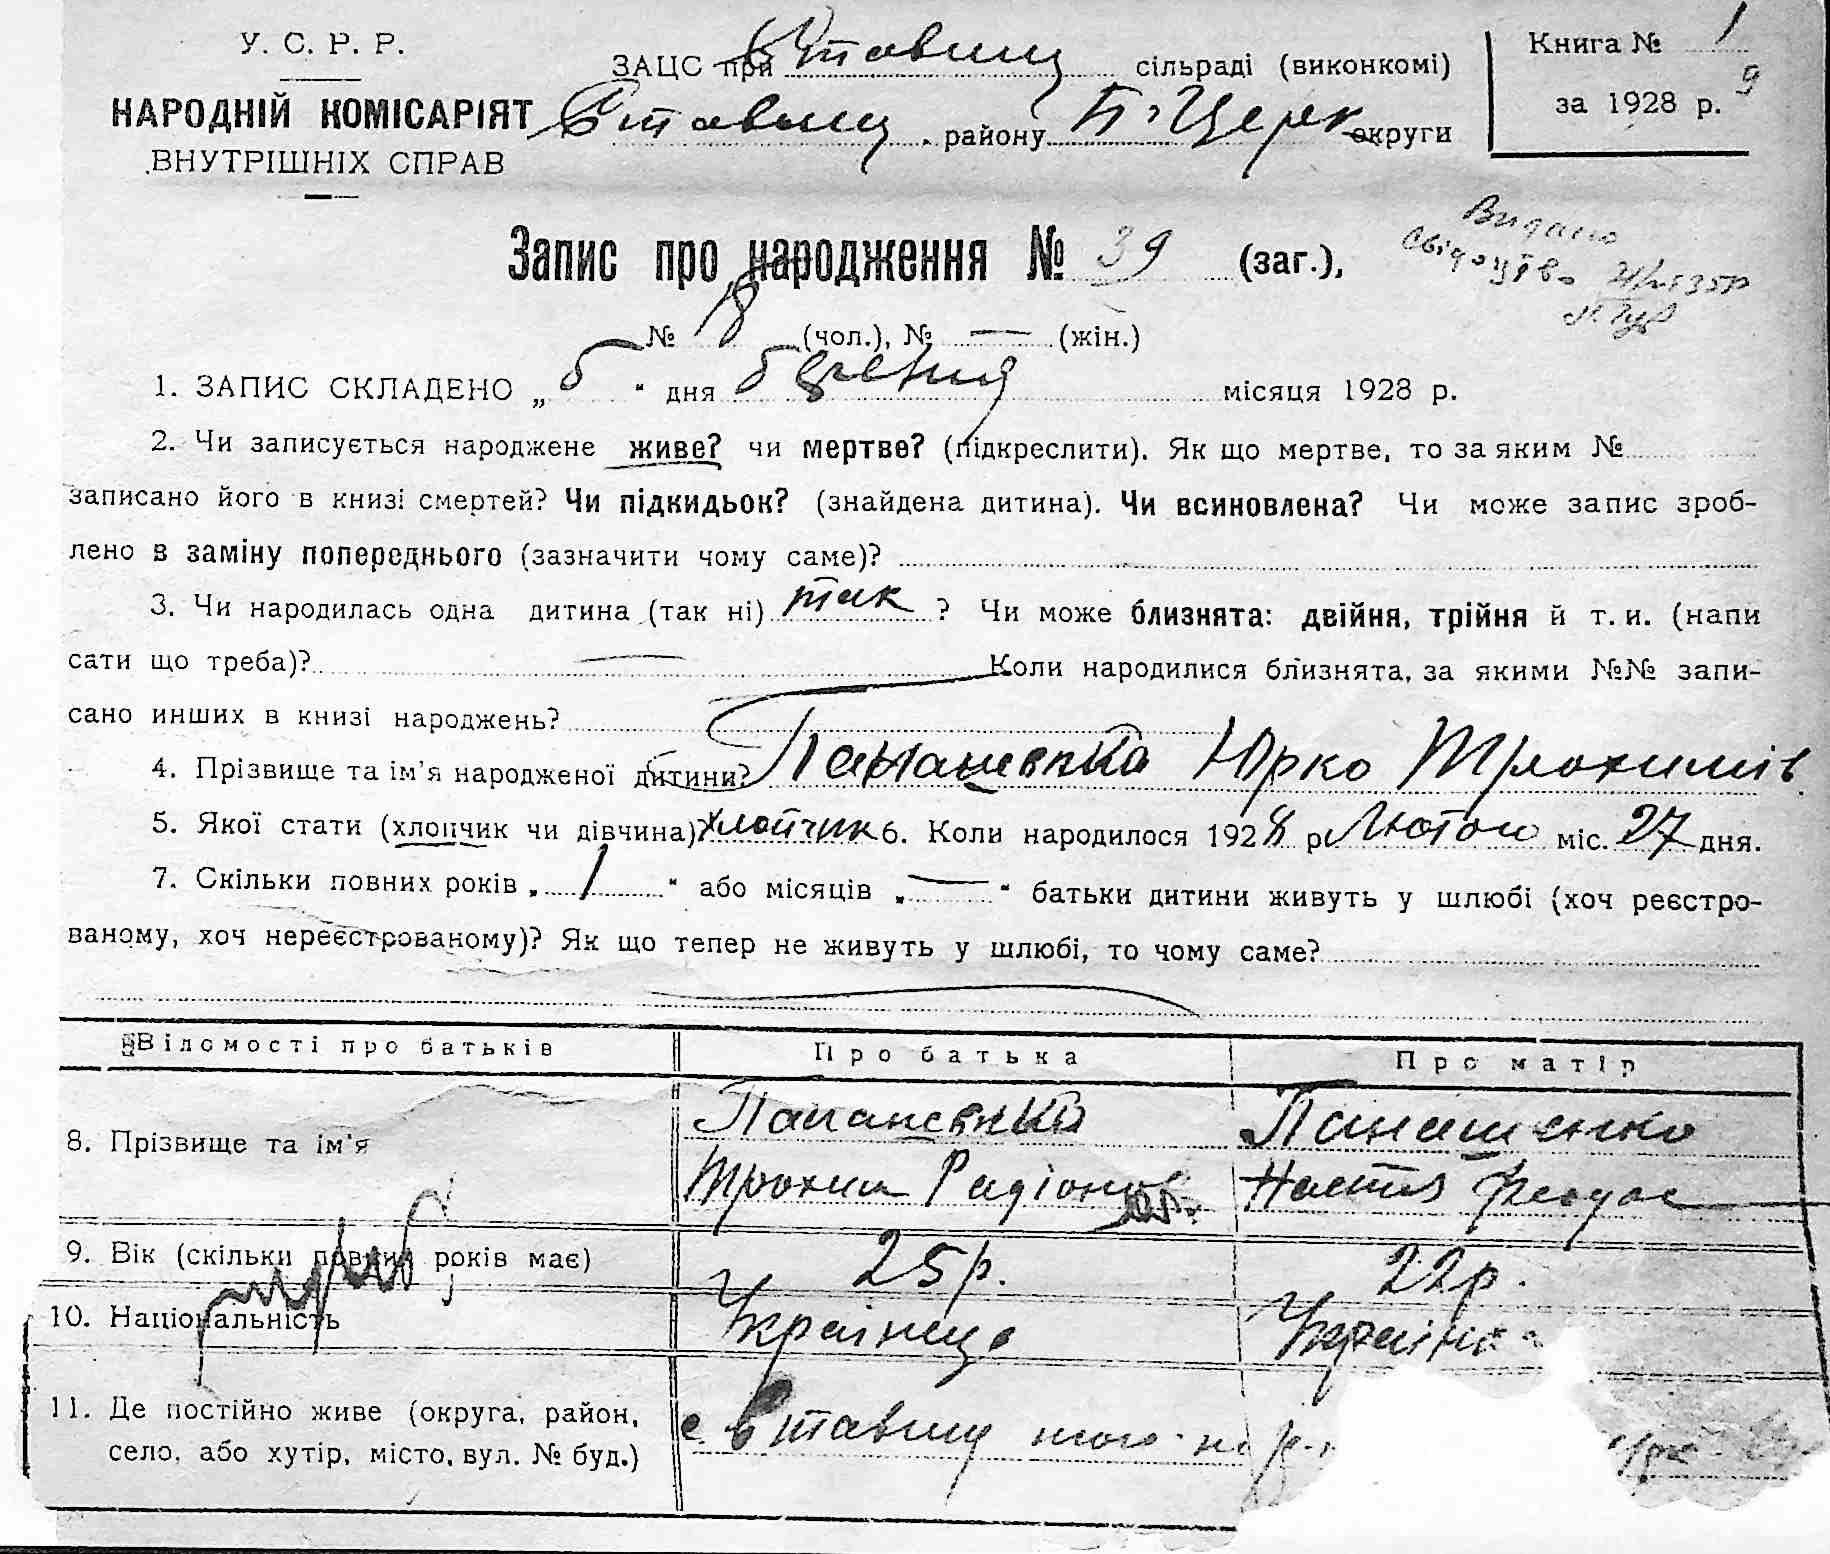 У. С. Р. Р.
НАРОДНІЙ КОМІСАРІЯТ
ВНУТРІШНІХ СПРАВ
ЗАЦС при Ставищ сільраді (виконкомі)
Ставищ району Б. Церк округи
Книга № 1
за 1928 р. 9
Запис про народження № 39 (заг.),
Видано
свідоцтво
№ 18 (чол.), № — (жін.)
1. ЗАПИС СКЛАДЕНО „ 6 “ дня березня місяця 1928 р.
2. Чи записується народжене живе? чи мертве? (підкреслити). Як що мертве, то за яким №
записано його в книзі смертей? Чи підкидьок? (знайдена дитина). Чи всиновлена? Чи може запис зроб-
лено в заміну попереднього (зазначити чому саме)?
3. Чи народилась одна дитина (так ні) так ? Чи може близнята: двійня, трійня й т. и. (напи
сати що треба)? — Коли народилися близнята, за якими №№ запи-
сано инших в книзі народжень?
4. Прізвище та ім’я народженої дитини? Панашенко Юрко Трохимів
5. Якої стати (хлопчик чи дівчина)? хлопчик 6. Коли народилося 1928 р Лютого міс. 27 дня.
7. Скільки повних років „ 1 “ або місяців „ — “ батьки дитини живуть у шлюбі (хоч реєстро-
ваному, хоч нереєстрованому)? Як що тепер не живуть у шлюбі, то чому саме?
Відомості про батьків Про батька Про матір
8. Прізвище та ім’я Панашенко Панашенко
Трохим Радіонов Настя Феодос
9. Вік (скільки повних років має) 25 р. 22 р.
10. Національність Українець Українка
11. Де постійно живе (округа, район, с Ставищ того-ж
село, або хутір, місто, вул. № буд.)